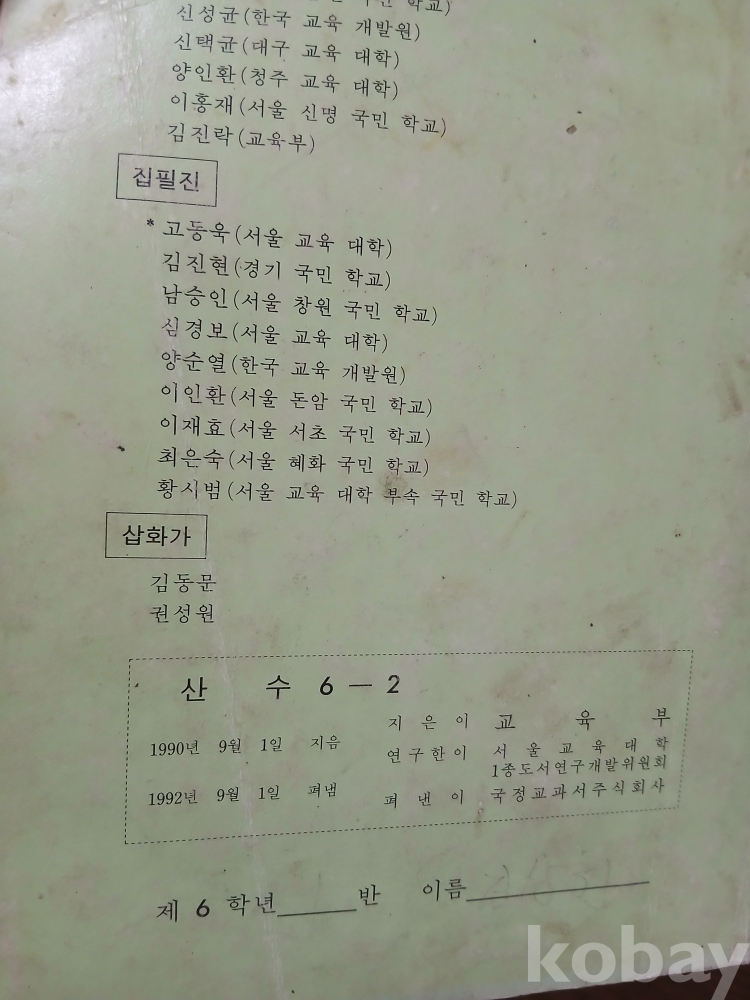 국민 학교)
신성균(한국 교육 개발원)
신택균(대구 교육 대학)
양인환(청주 교육 대학)
이홍재(서울 신명 국민 학교)
김진락(교육부)
집필진
* 고동욱(서울 교육 대학)
김진현(경기 국민 학교)
남승인(서울 창원 국민 학교)
심경보(서울 교육 대학)
양순열(한국 교육 개발원)
이인환(서울 돈암 국민 학교)
이재효(서울 서초 국민 학교)
최은숙(서울 혜화 국민 학교)
황시범(서울 교육 대학 부속 국민 학교)
삽화가
김동문
권성원
산 수 6 — 2
1990년 9월 1일 지음
1992년 9월 1일 펴냄
지은이 교육부
연구한이 서울교육대학
1종도서연구개발위원회
펴낸이 국정교과서주식회사
제 6 학년 반 이름
kobay